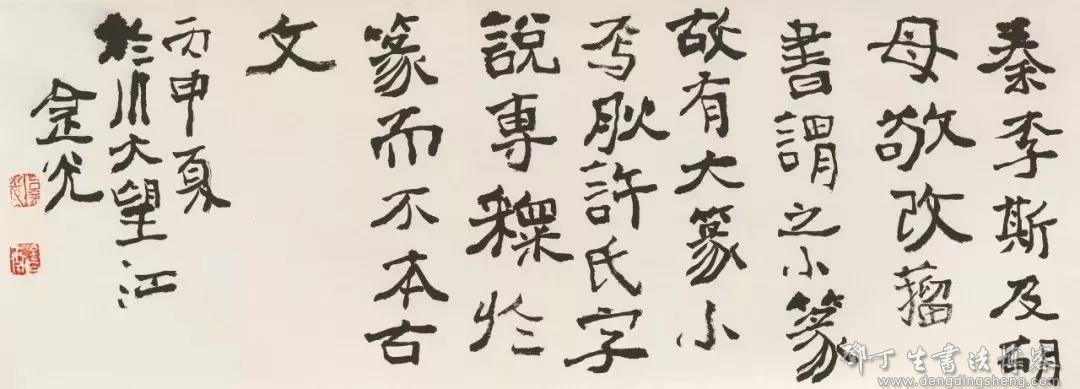 秦李斯及胡
母敬改籀
書謂之小篆
故有大篆小
焉肰許氏字
說專於
篆而不本古
文
丙申夏
於川大望江
光
鄧丁生書法博客
www.dengdingsheng.com